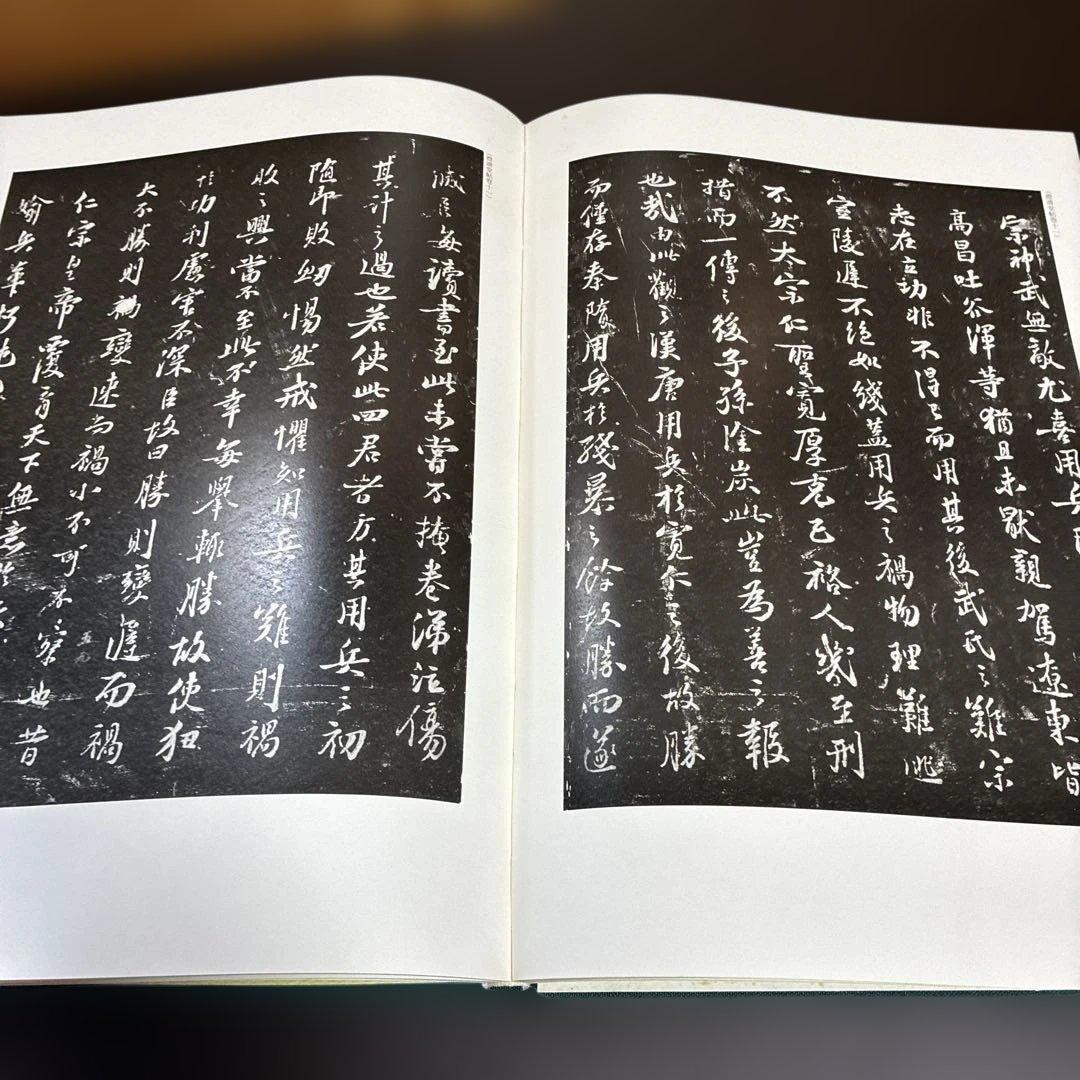 宗神武無敵尤喜用兵既
高昌吐谷渾等猶且未厭親駕遼東皆
志在立功非不得已而用其後武氏之難宗
室陵遲不絕如綫蓋用兵之禍物理難逃
不然太宗仁聖寬厚克己裕人幾至刑
措而一傳之後子孫塗炭此豈為善之報
也哉由此觀之漢唐用兵於寬仁之後故勝
而僅存秦隋用兵於殘暴之餘故勝而遂
滅臣每讀書至此未嘗不掩卷涕泣傷
其計之過也若使此四君者方其用兵之初
隨即敗衂惕然戒懼知用兵之難則禍
敗之興當不至此不幸每舉輒勝故使狃
於功利慮害不深臣故曰勝則變遲而禍
大不勝則變速而禍小不可不察也昔
仁宗皇帝覆育天下無意於
媮兵革朽鈍